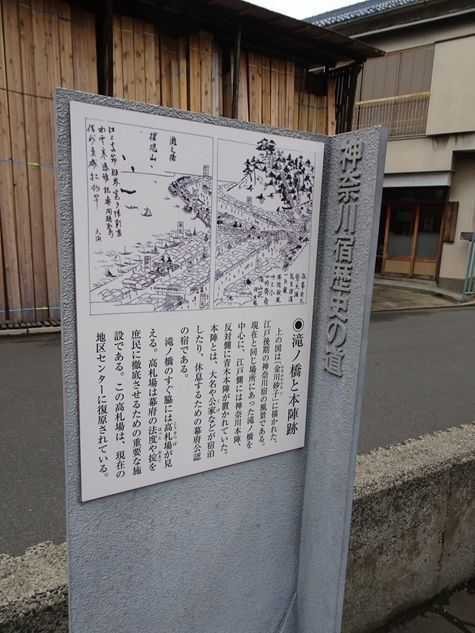 神奈川宿歴史の道
◉滝ノ橋と本陣跡
上の図は「金川砂子」に描かれた、
江戸後期の神奈川宿の風景である。
現在と同じ場所にあった滝ノ橋を
中心に、江戸側には神奈川本陣、
反対側に青木本陣が置かれていた。
本陣とは、大名や公家などが宿泊
したり、休息するための幕府公認
の宿である。
滝ノ橋のすぐ脇には高札場が見
える。高札場は幕府の法度や掟を
庶民に徹底させるための重要な施
設である。この高札場は、現在の
地区センターに復原されている。
滝之橋
権現山